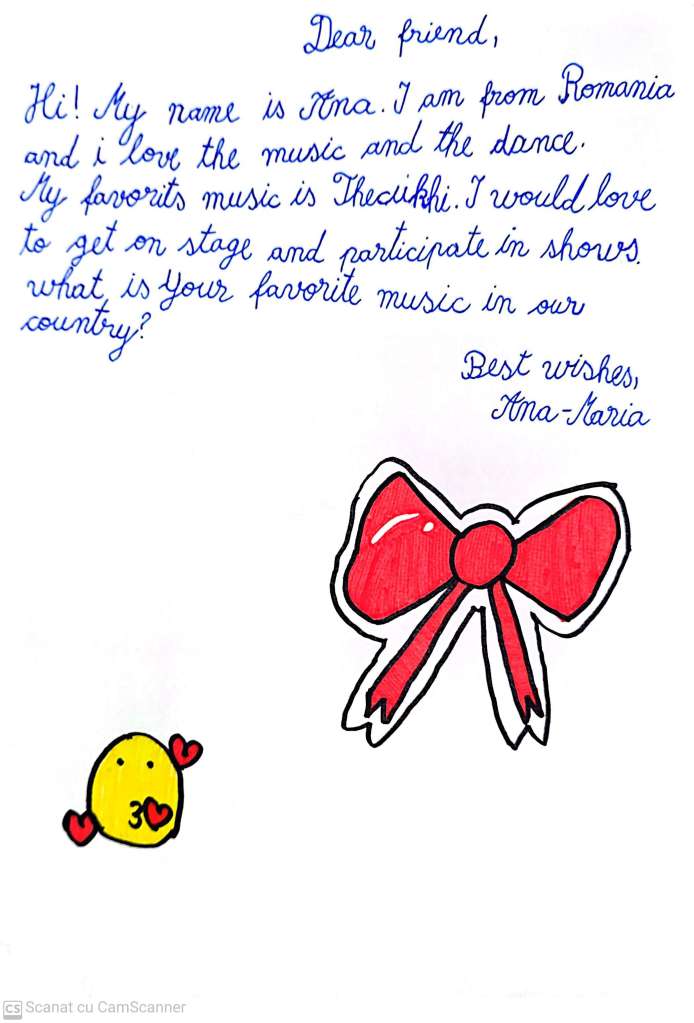 Dear friend,
Hi! My name is Ana. I am from Romania
and i love the music and the dance.
My favorits music is Theciikhi. I would love
to get on stage and participate in shows.
what is Your favorite music in our
country?
Best wishes,
Ana-Maria
3
CS Scanat cu CamScanner